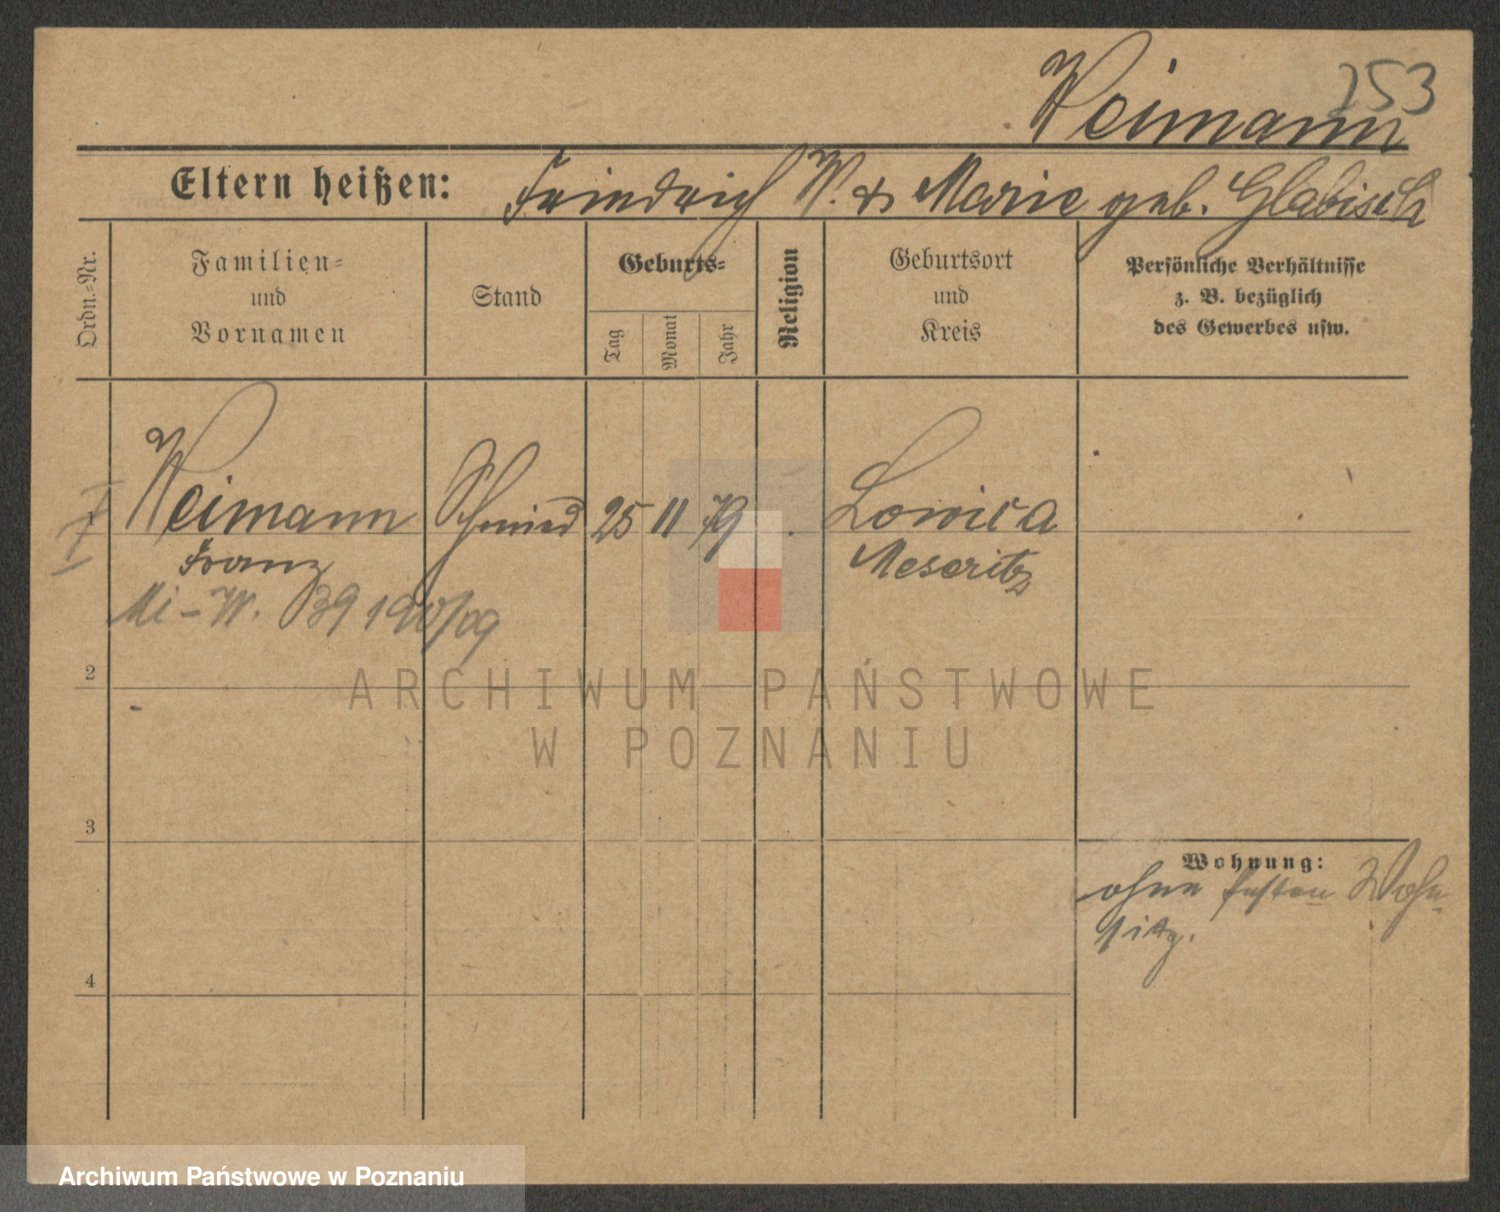 253
Weimann
Eltern heißen: Friedrich W. & Marie geb. Glabisch
Ordn.-Nr.
Familien-
und
Vornamen
Stand
Geburts-
Tag
Monat
Jahr
Religion
Geburtsort
und
Kreis
Persönliche Verhältnisse
z. B. bezüglich
des Gewerbes usw.
Weimann Schmied 25 11 79 Lowica
Franz Meseritz
Mi-W. 190/09
2
3
4
Wohnung:
ohne festen Wohn-
sitz.
ARCHIWUM PAŃSTWOWE
W POZNANIU
Archiwum Państwowe w Poznaniu